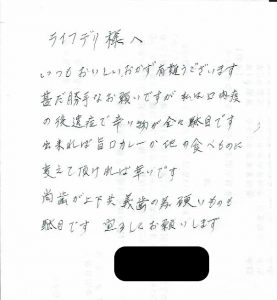 ライフデリ様へ
いつもおいしいおかず有難うございます
甚だ勝手なお願いですが私は口内疫
の後遺症で辛い物が全く駄目です
出来れば旨口カレーか他の食べものに
変えて頂ければ幸いです
尚歯が上下共義歯の為硬いものも
駄目です 宜しくお願いします